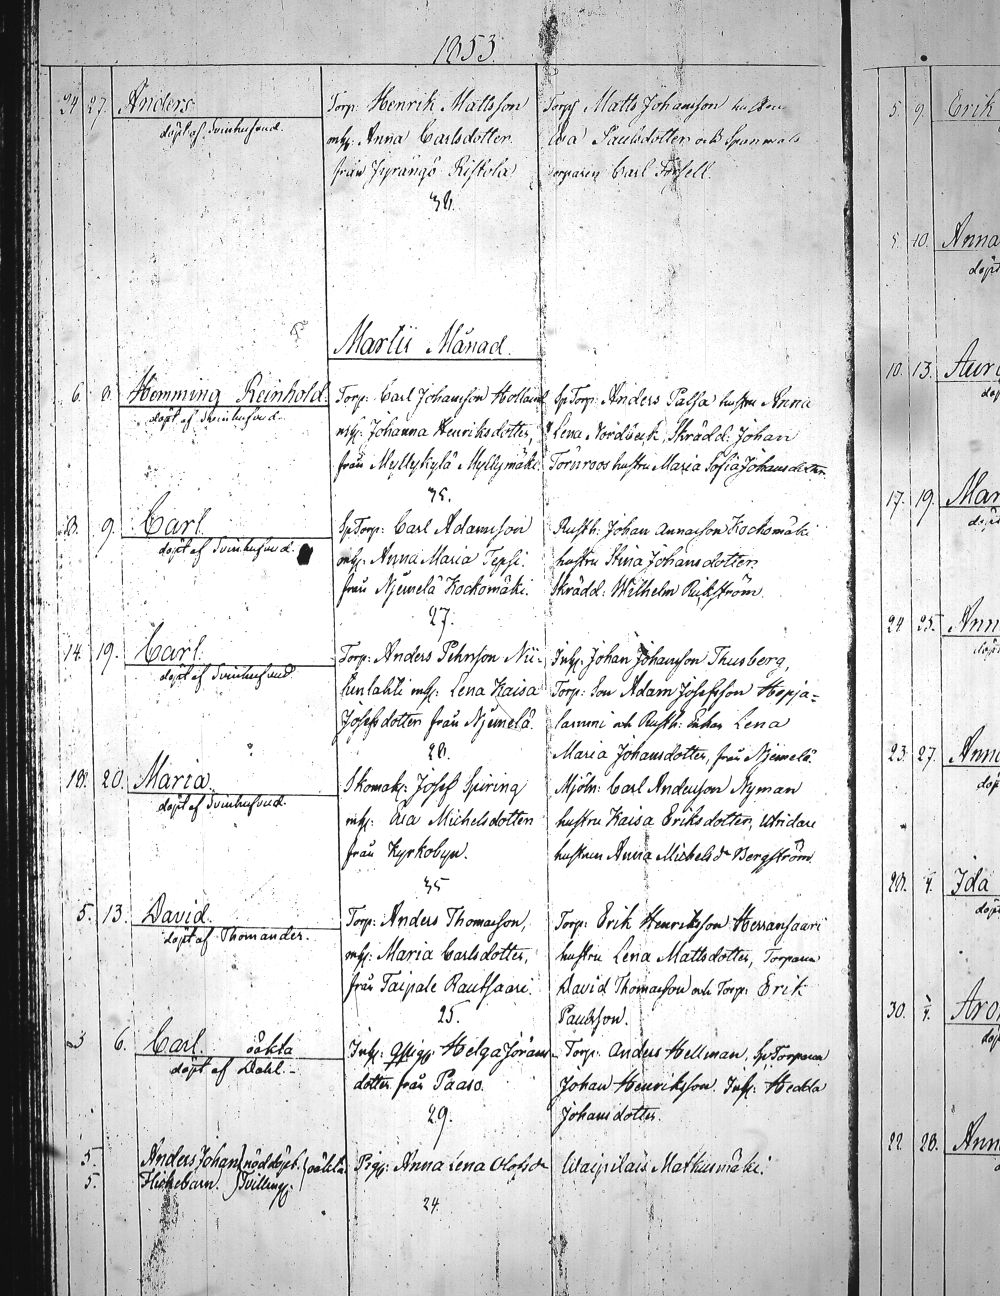 1853.
24 27. Anders
döpt af Svinhufvud.
Torp: Henrik Mattsson
mh: Anna Carlsdotter
från Jyrängö Ristola
38.
Torp: Matts Johansson hustru
Eva Paulsdotter och Spanmåls
torparen Carl Forsell.
Martii Månad.
6. 8. Hemming Reinhold.
döpt af Svinhufvud.
Torp: Carl Johansson Holland
mh: Johanna Henriksdotter,
från Myllykylä Myllymäki.
35.
SpTorp: Anders Palja hustru Anna
Lena Nordbeck, Skrädd: Johan
Törnroos hustru Maria Sofia Johansdotter
8. 9. Carl.
döpt af Svinhufvud.
SpTorp: Carl Adamsson
mh: Anna Maria Tepsi.
från Njemelä Kockomäki.
27.
Rusth: Johan Annasson Kockomäki
hustru Stina Johansdotter
Skrädd: Wilhelm Rikström
14. 19. Carl.
döpt af Svinhufvud.
Torp: Anders Pehrsson Nii-
lunlahti mh: Lena Kaisa
Josefsdotter från Njemelä.
28.
Inh: Johan Johansson Thusberg,
Torp: Son Adam Josefsson Hepja-
lammi och Rusth: Enkan Lena
Maria Johansdotter, från Njemelä.
18. 20. Maria.
döpt af Svinhufvud.
Skomak: Josef Spiring
mh: Eva Michelsdotter
från Kyrkobyn.
35
Mjöln: Carl Andersson Nyman
hustru Kaisa Eriksdotter, Utridare
hustrun Anna Michelsdr Bergström
5. 13. David.
döpt af Thomander.
Torp: Anders Thomasson,
mh: Maria Carlsdotter,
från Taipale Rautsaari.
25.
Torp: Erik Henriksson Herransaari
hustru Lena Mattsdotter, Torparen
David Thomasson och Torp: Erik
Paulsson.
3 6. Carl. oäkta
döpt af Dahl.
Inh: Helga Jörans-
dotter från Paaso.
29.
Torp: Anders Hellman, SpTorparen
Johan Henriksson. Inh: Hedda
Johansdotter.
5. Anders Johan } nöddöpt. } oäkta
5. Flickebarn. } Tvilling.
Pig: Anna Lena Olofsdr
24.
Matkusmäki.
5. 9. Erik
5. 10. Anna
döpt
10. 13. 
döpt
17. 19. Mar
döpt
24 25. Ann
döpt
23. 27. Anna
döpt
28. Ida
döpt
30. Aron
döpt
22. 28. Ann